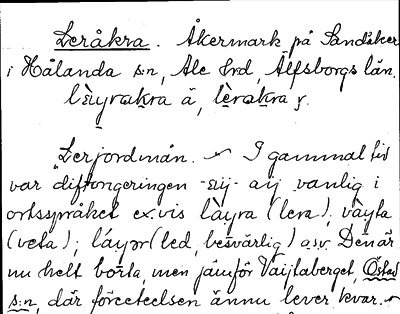 Leråkra. Åkermark på Sandåker
i Hålanda s:n, Ale hrd, Älfsborgs län.
lèıyrakra ä, lèrakra y.
"Lerjordmån. I gammal tid
var diftongeringen -eıy- aıy vanlig i
ortsspråket ex.vis làyra (lera), vàyta
(veta); láyər (led, besvärlig) a.s.v. Den är
nu helt borta, men jämför Vaijtaberget, Östad
s:n, där företeelsen ännu lever kvar.